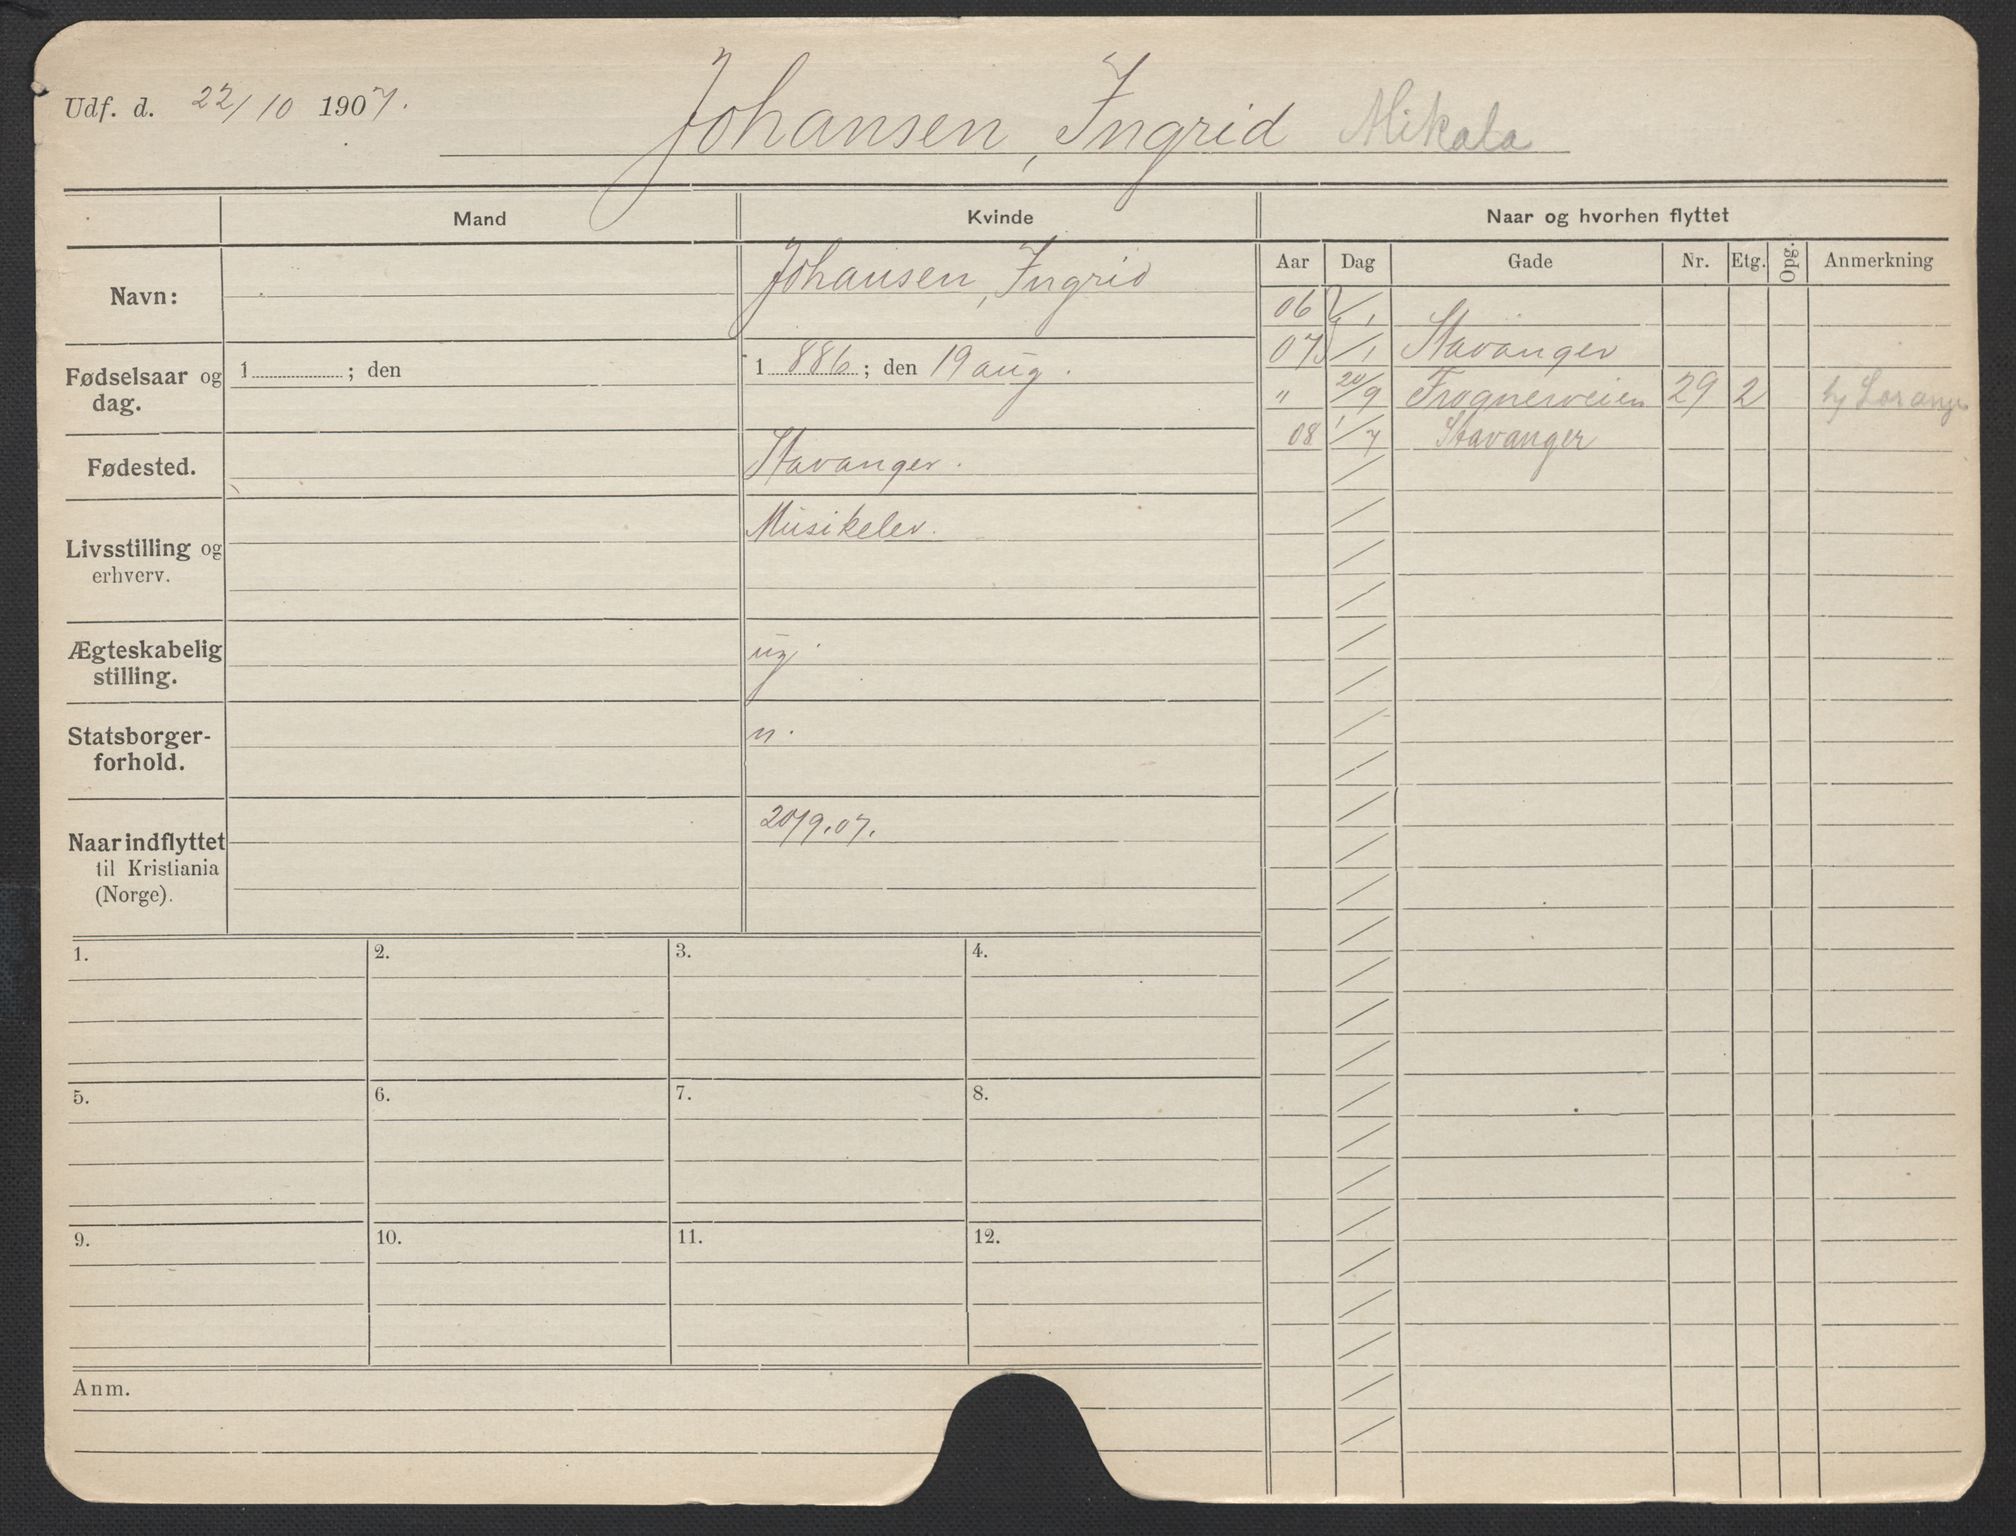 Udf. d. 22/10 1907.
Johansen, Ingrid Mikala
Mand
Kvinde
Naar og hvorhen flyttet
Aar Dag Gade Nr. Etg. Opg. Anmerkning
Navn:
Johansen, Ingrid
Fødselsaar og dag.
1 ; den
1 886 ; den 19 aug.
Fødested.
Stavanger.
Livsstilling og
erhverv.
Musikelev.
Ægteskabelig
stilling.
ug.
Statsborger-
forhold.
n.
Naar indflyttet
til Kristiania
(Norge).
20/9.07.
06 1/1
07 1/1 Stavanger
" 20/9 Frognerveien 29 2 hj Lorange
08 1/7 Stavanger
1. 2. 3. 4.
5. 6. 7. 8.
9. 10. 11. 12.
Anm.